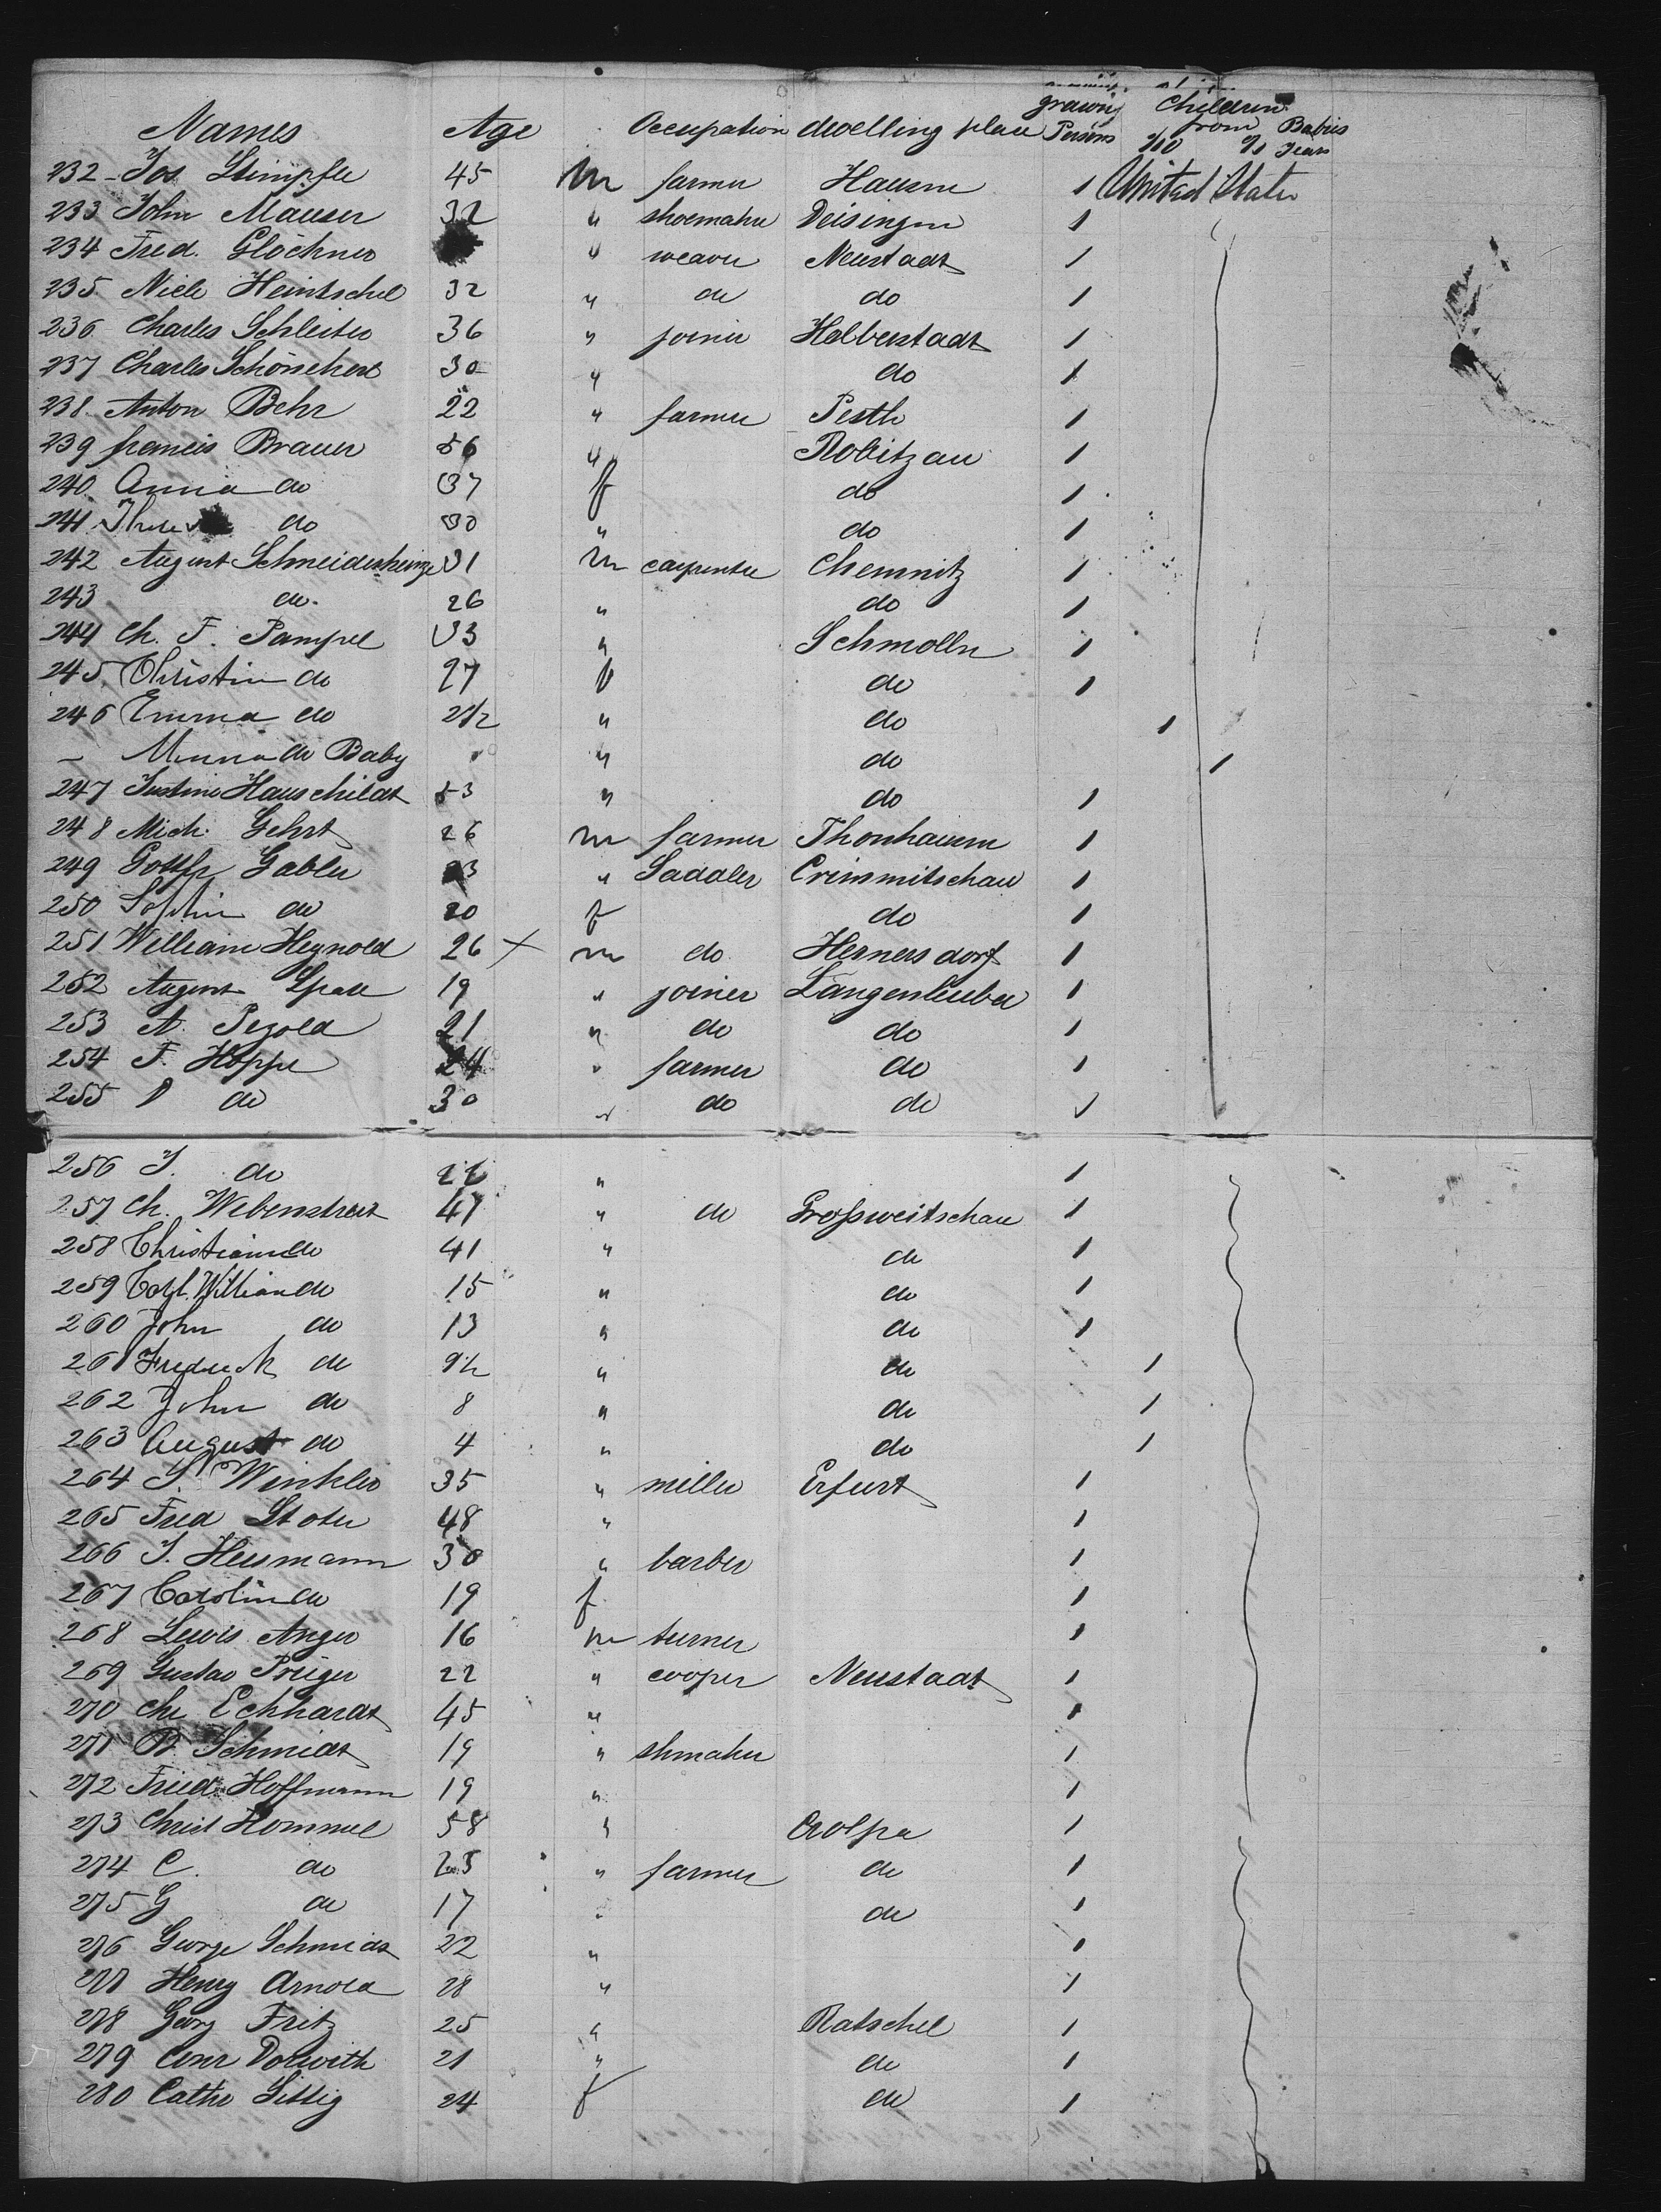 Names Age Occupation dwelling place growing Persons Children from 2/10 Babies 0/1 Years
232 - Jos Stimpfle 45 m farmer Hausen 1 United States
233 John Mauser 32 " shoemaker Deisingen 1
234 Fred. Glöckner " weaver Neustadt 1
235 Heintschel 32 " do do 1
236 Charles Schleiter 36 " joiner Halberstadt 1
237 Charles Schönchert 30 " do 1
238 Anton Behr 22 " farmer Pesth 1
239 francis Brauer 56 " Robitzau 1
240 Anna do 37 f do 1
241 do 30 " do 1
242 August Schneiderheinze 31 m carpenter Chemnitz 1
243 do. 26 " do 1
244 Ch. F. Pampel 33 " Schmolln 1
245 Christin do 27 f do 1
246 Emma do 2 1/2 " do 1
- Minna do Baby " do 1
247 Justine Hauschildt 53 " do 1
248 Mich. Gehrt 26 m farmer Thonhausen 1
249 Gottfr Gabler " Saddler Crimmitschau 1
250 Sophie do 20 f do 1
251 William Heynold 26 x m do Hernersdorf 1
252 August Spall 19 " joiner Langenleuba 1
253 A. Pezold 21 " do do 1
254 F. Hoppe 24 " farmer do 1
255 do 30 " do do 1
256 J. do 22 " 1
257 Ch. Webenstreit 47 " do Grossweitschau 1
258 Christian do 41 " do 1
259 William do 15 " do 1
260 John do 13 " do 1
261 Frederick do 9 1/2 " do 1
262 John do 8 " do 1
263 August do 4 " do 1
264 S. Winkler 35 " miller Erfurt 1
265 Fred Stoter 48 " 1
266 J. Hersmann 30 " barber 1
267 Carolin do 19 f 1
268 Lewis Anger 16 m turner 1
269 Gustav Prüger 22 " cooper Neustadt 1
270 Chr Eckhardt 45 " 1
271 B Schmidt 19 " shmaker 1
272 Fried. Hoffmann 19 " 1
273 Christ Hommel 58 " Crolpa 1
274 C. do 25 " farmer do 1
275 G do 17 " do 1
276 George Schmidt 22 " 1
277 Henry Arnold 28 " 1
278 Georg Fritz 25 " Ratschel 1
279 Dorwith 21 " do 1
280 Cathr Sittig 24 f do 1